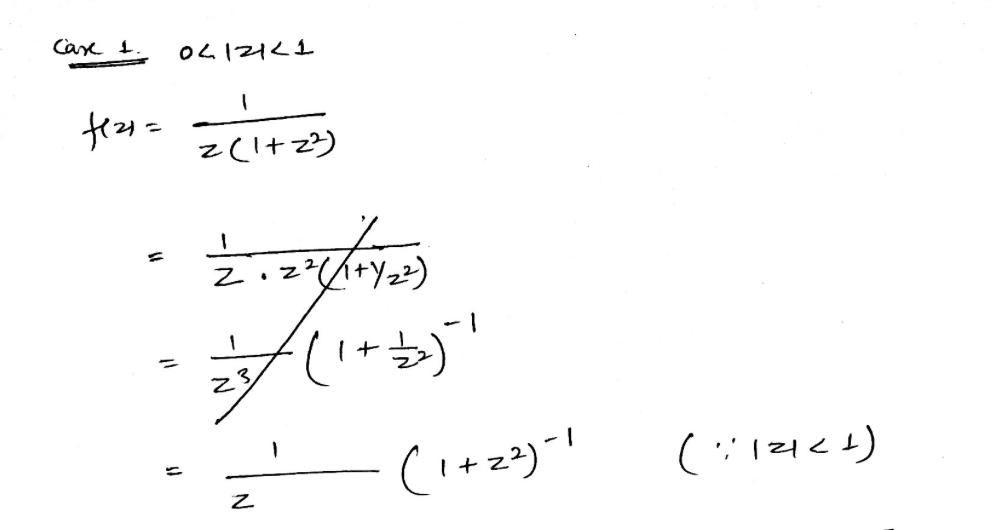 Case 1. 0<|z|<1
f(z) = 1/(z(1+z²))
= 1/(z · z²(1+1/z²))
= 1/z³ (1 + 1/z²)⁻¹
= 1/z (1+z²)⁻¹ (∵ |z| < 1)